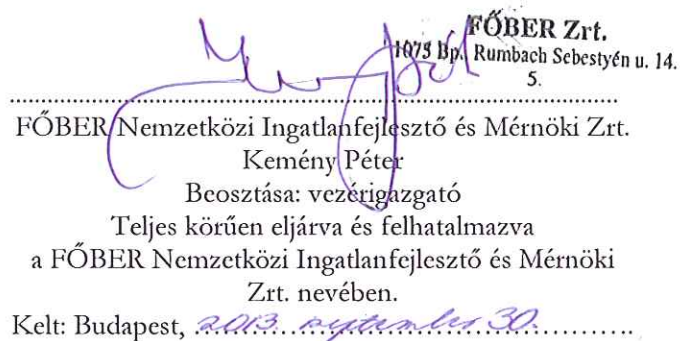 FŐBER Zrt.
1075 Bp. Rumbach Sebestyén u. 14.
5.
FŐBER Nemzetközi Ingatlanfejlesztő és Mérnöki Zrt.
Kemény Péter
Beosztása: vezérigazgató
Teljes körűen eljárva és felhatalmazva
a FŐBER Nemzetközi Ingatlanfejlesztő és Mérnöki
Zrt. nevében.
Kelt: Budapest, 2013. szeptember 30.